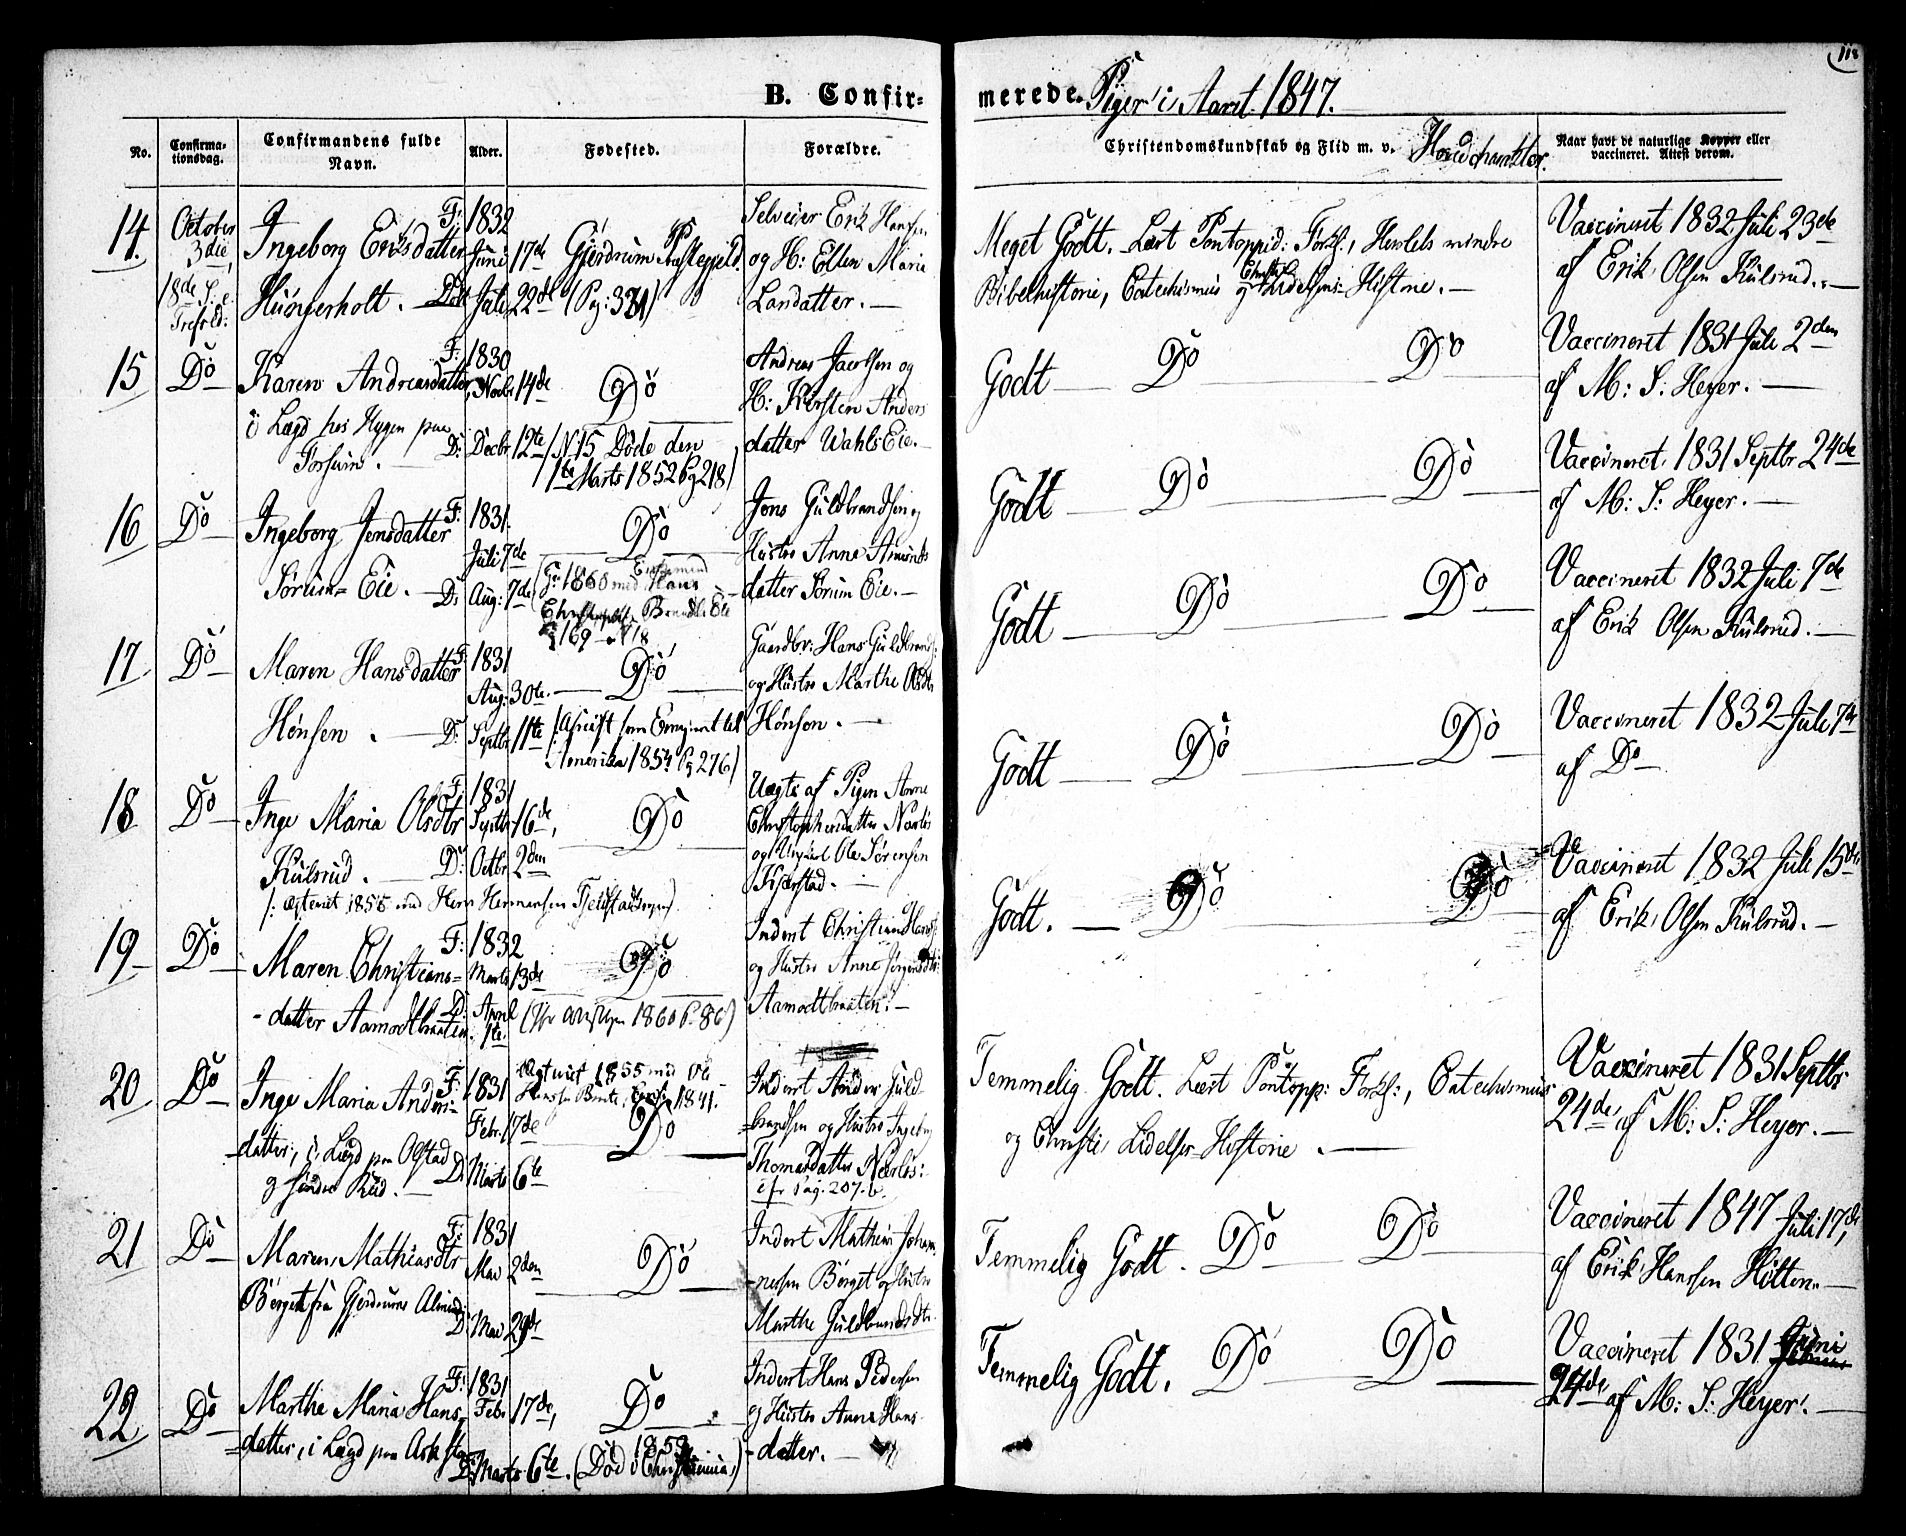 118
B. Confir= merede. Piger i Aaret 1847.
No. Confirma-tionsdag. Confirmandens fulde Navn. Alder. Fødested. Forældre. Christendomskundskab og Flid m. v. Naar havt de naturlige Kopper eller vaccineret. Attest derom.
14. October 3die, 18de S. e. Trefold:
Ingeborg Ericsdatter
Hungerholt.
F: 1832 Juni 17de
Døbt Juli 22de
Gjerdrum Præstegjeld.
(Pag: 321)
Selveier Erik Hansen
og H: Ellen Maria
Larsdatter.
Meget Godt. Læst Pontoppid: Forkl:, Herslebs mindre
Bibelhistorie, Catechismus og Christi Lidelses Historie.
Vaccineret 1832 Juli 23de
af Erik Olsen Kulsrud.
15 Do
Karen Andreasdatter
i Lægd hos Hygen paa
F: 1830 Novbr 14de
D: Decbr 12te
Do
(N 15 Døde den
1te Marts 1852 Pg 218)
Andreas Jacobsen og
H: Kirsten Anders
datter Wahls Eie.
Godt Do Do
Vaccineret 1831 Juli 2den
af M: S: Heyer.
16 Do
Ingeborg Jensdatter
Sørum= Eie.
F: 1831 Juli 7de
D: Aug: 7de
Do
(G: 1860 med Enkemand Hans
Pg 169 N 18
Jens Guldbrandsen og
Hustro Anne Amunds
datter Sørum Eie.
Godt Do Do
Vaccineret 1831 Septbr 24de
af M: S: Heyer.
17 Do
Maren Hansdatter
Hønsen.
F: 1831 Aug: 30te
D: Septbr 11te
Do
(Afreist som Emigrant til
Amerika 1854 Pg 276)
Gaardbr: Hans Guldbrands:
og Hustro Marthe Olsdtr
Hønsen.
Godt Do Do
Vaccineret 1832 Juli 7de
af Erik Olsen Kulsrud.
18 Do
Inge Maria Olsdtr
Kulsrud.
F: 1831 Septbr 16de,
D: Octbr 2den
Do
Uægte af Pigen Anne
Christophersdatter
og Ungkarl Ole Sørensen
Godt Do Do
Vaccineret 1832 Juli 7de
af Do
19 Do
Maren Christians=
datter Aamodtbraaten.
F: 1832 Marts 13de
D: April 1te
Do
Inderst Christian Hans:
og Hustro Anne Jørgensdtr
Aamodtbraaten.
Godt. Do Do
Vaccineret 1832 Juli 15de
af Erik Olsen Kulsrud.
20 Do
Inge Maria Anders=
datter, i Lægd paa Olstad
og søndre Rud.
F: 1831 Febr: 7de
D: Marts 6te
Do
Inderst Anders Guld=
brandsen og Hustro Ingeborg
Thomasdatter
cfr Pag. 207. b.
Temmelig Godt. Læst Pontopp: Forkl:, Catechismus
og Christi Lidelses Historie.
Vaccineret 1831 Septbr
24de, af M: S: Heyer.
21 Do
Maren Mathiasdtr
Børget fra Gjerdrums Alminding
F: 1831 Mai 2den
D: Mai 29de
Do
Inderst Mathias Johan=
nessen Børget og Hustro
Marthe Guldbrandsdtr.
Temmelig Godt. Do Do
Vaccineret 1847 Juli 17de,
af Erik Hanssen
22 Do
Marthe Maria Hans=
datter, i Lægd paa
F: 1831 Febr 17de,
D: Marts 6te.
Do
(Død 1858 i Christiania,)
Inderst Hans Pedersen
og Hustro Anne Hans
datter.
Temmelig Godt. Do Do
Vaccineret 1831 Juni
24de, af M: S: Heyer.